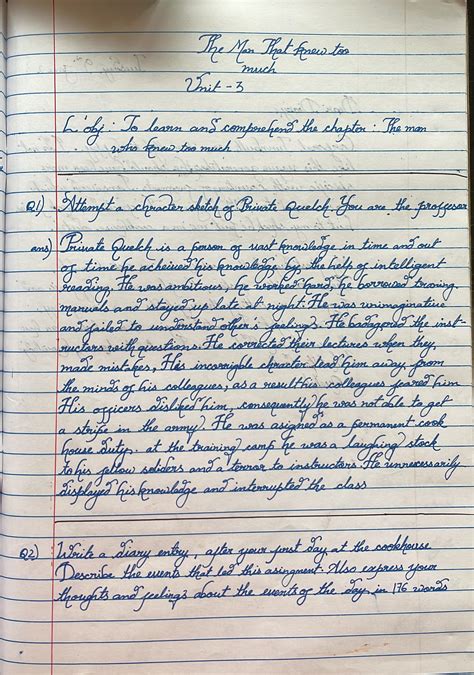 The Man That knew too
much
Unit - 3
L'obj : To learn and comprehend the chapter : The man
who knew too much
Q1) Attempt a chracter sketch of Private Quelch. You are the proffesor
ans) Private Quelch is a person of vast knowledge in time and out
of time he acheived his knowledge by the help of intelligent
reading. He was ambitious, he worked hard, he borrowed traning
manuals and stayed up late at night. He was unimaginative
and failed to understand other's feelings. He badagered the inst-
ructers with questions. He corrected their lectures when they
made mistakes, His chracter him away from
the minds of his colleagues, as a result his colleagues feared him
His officers disliked him, consequently he was not able to get
a stripe in the army. He was asigned as a permanent cook
house duty. at the training camp he was a laughing stock
to his fellow soliders and a terror to instructers. He unnecessarily
displayed his knowledge and interrupted the class
Q2) Write a diary entry, after your first day at the cookhouse
Describe the events that led this asingment. Also express your
thoughts and feelings about the events of the day in 176 words